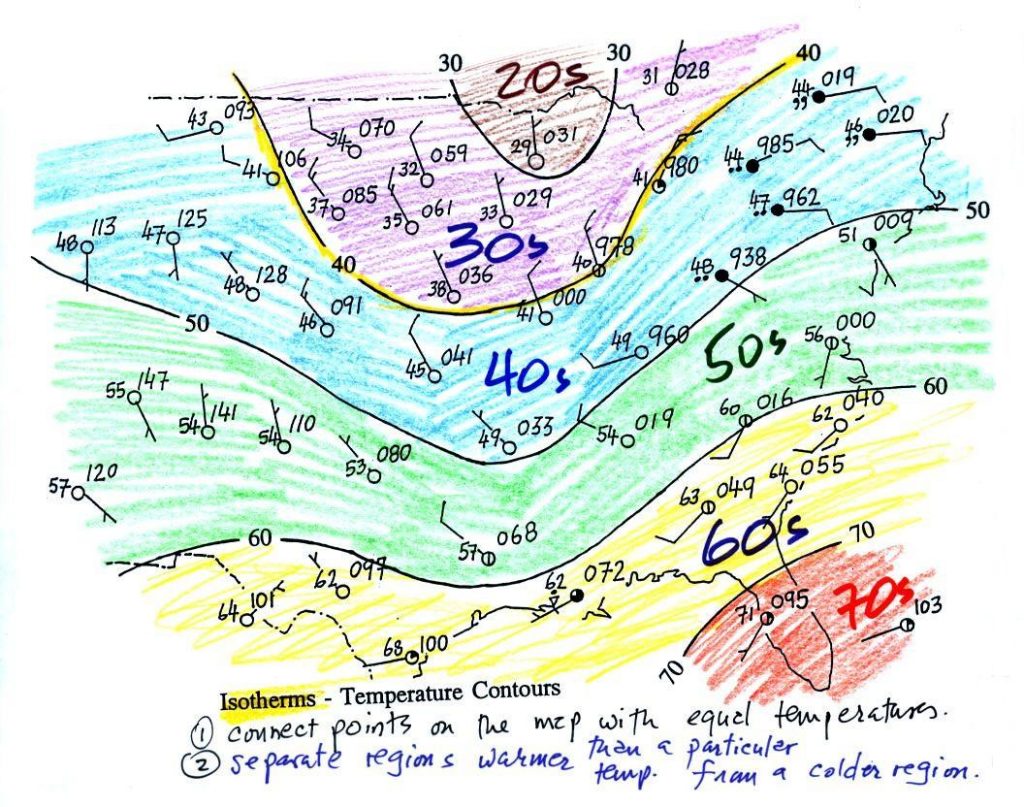 30
30
40
20s
31 028
44 019
,,
43 093
34 070
29 031
46 020
,,
41 106
32 059
41 980
44 985
37 085
35 061
33 029
47 962
50
48 113
47 125
30s
40 978
51 009
40
48 128
38 036
41 000
48 938
50
46 091
45 041
49 960
50s
56 000
40s
55 147
54 141
54 110
49 033
54 019
60 016
60
62 040
57 120
53 080
64 055
63 049
60
57 068
60s
70
62 097
62 072
64 101
71 095
70s
103
68 100
70
Isotherms - Temperature Contours
① connect points on the map with equal temperatures.
② separate regions warmer than a particular
temp. from a colder region.